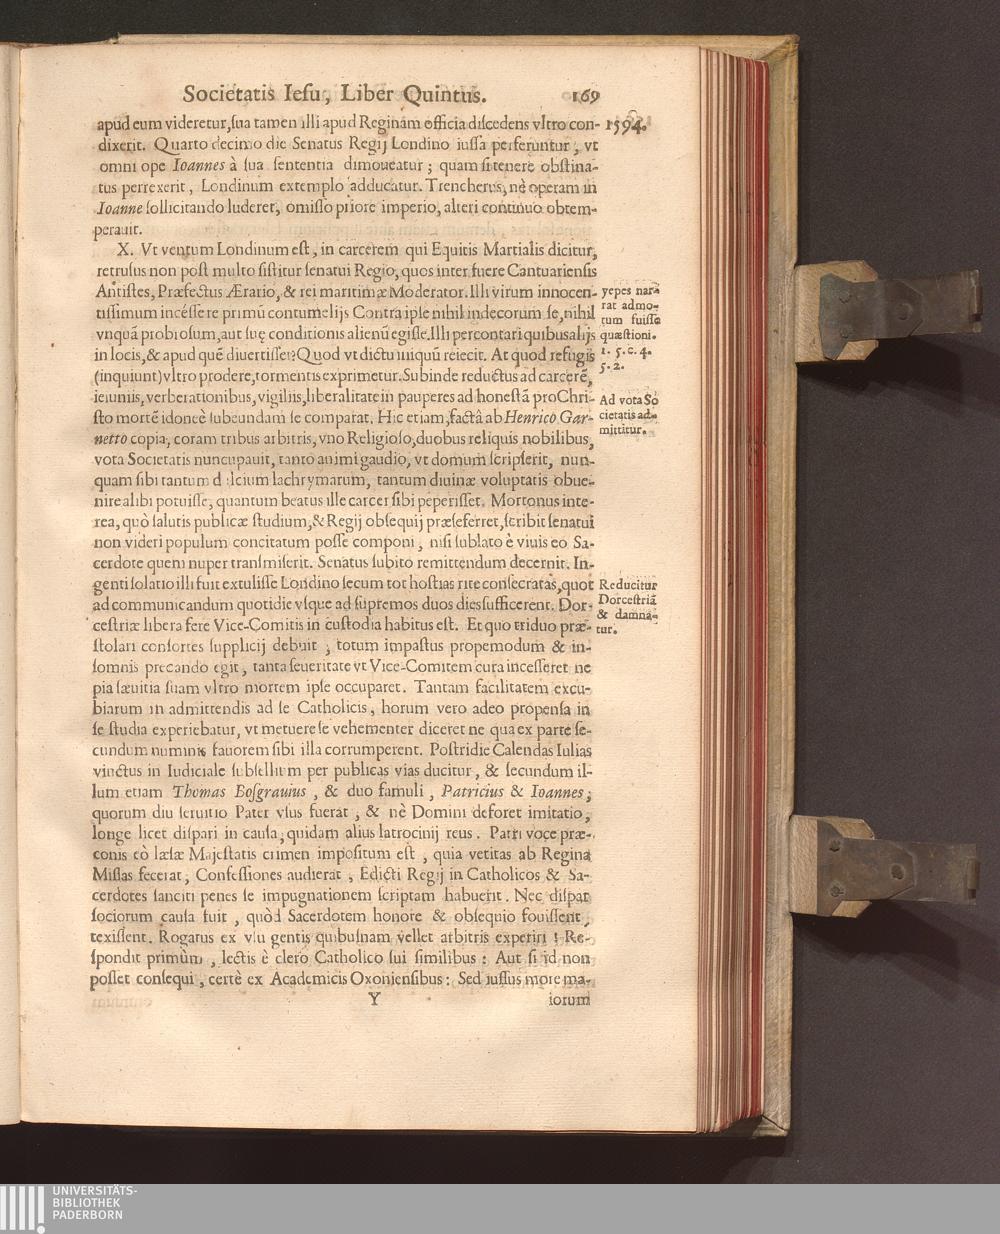 Societatis Iesu, Liber Quintus. 169
apud eum videretur, sua tamen illi apud Reginam officia discedens vltro con- 1594.
dixerit. Quarto decimo die Senatus Regij Londino iussa perferuntur, vt
omni ope Ioannes à sua sententia dimoueatur; quam si tenere obstina-
tus perrexerit, Londinum extemplo adducatur. Trencherus, nè operam in
Ioanne sollicitando luderet, omisso priore imperio, alteri continuo obtem-
perauit.
X. Vt ventum Londinum est, in carcerem qui Equitis Martialis dicitur,
retrusus non post multo sistitur senatui Regio, quos inter fuere Cantuariensis
Antistes, Præfectus Ærario, & rei maritimæ Moderator. Illi virum innocen-
tissimum incésse re primū contumelijs Contra ipse nihil indecorum se, nihil
vnquā probiosum, aut suę conditionis alienū egisse. Illi percontari quibus alijs
in locis, & apud quē diuertisset? Quod vt dictu iniquū reiecit. At quod refugis
(inquiunt) vltro prodere, tormentis exprimetur. Subinde reductus ad carcerē,
ieiuniis, verberationibus, vigiliis, liberalitate in pauperes ad honestā pro Chri-
sto mortē idoneè subeundam se comparat. Hic etiam, factâ ab Henrico Gar-
netto copia, coram tribus arbitris, vno Religioso, duobus reliquis nobilibus,
vota Societatis nuncupauit, tanto animi gaudio, vt domum scripserit, nun-
quam sibi tantum dulcium lachrymarum, tantum diuinæ voluptatis obue-
nire alibi potuisse, quantum beatus ille carcer sibi peperisset. Mortonus inte-
rea, quò salutis publicæ studium, & Regij obsequij præseferret, scribit senatui
non videri populum concitatum posse componi, nisi sublato è viuis eo Sa-
cerdote quem nuper transmiserit. Senatus subito remittendum decernit. In-
genti solatio illi fuit extulisse Londino secum tot hostias rite consecratas, quot
ad communicandum quotidie vsque ad supremos duos dies sufficerent. Dor-
cestriæ libera fere Vice-Comitis in custodia habitus est. Et quo triduo præ-
stolari consortes supplicij debuit, totum impastus propemodum & in-
somnis precando egit, tanta seueritate vt Vice-Comitem cura incesseret ne
pia sæuitia suam vltro mortem ipse occuparet. Tantam facilitatem excu-
biarum in admittendis ad se Catholicis, horum vero adeo propensa in
se studia experiebatur, vt metuere se vehementer diceret ne qua ex parte se-
cundum numinis fauorem sibi illa corrumperent. Postridie Calendas Iulias
vinctus in Iudiciale subsellium per publicas vias ducitur, & secundum il-
lum etiam Thomas Bosgrauius, & duo famuli, Patricius & Ioannes;
quorum diu seruitio Pater vsus fuerat, & nè Domini deforet imitatio,
longe licet dispari in causa, quidam alius latrocinij reus. Patri voce præ-
conis eò læsæ Majestatis crimen impositum est, quia vetitas ab Regina
Missas fecerat, Confessiones audierat, Edicti Regij in Catholicos & Sa-
cerdotes sanciti penes se impugnationem scriptam habuerit. Nec dispar
sociorum causa fuit, quòd Sacerdotem honore & obsequio fouissent,
texissent. Rogatus ex vsu gentis quibusnam vellet arbitris experiri? Re-
spondit primùm, lectis è clero Catholico sui similibus: Aut si id non
posset consequi, certè ex Academicis Oxoniensibus: Sed iussus more ma-
Y iorum
yepes nar-
rat admo-
tum fuisse
quæstioni.
1. 5. c. 4.
5. 2.
Ad vota So
cietatis ad-
mittitur.
Reducitur
Dorcestriā
& damna-
tur.
UNIVERSITÄTS-
BIBLIOTHEK
PADERBORN